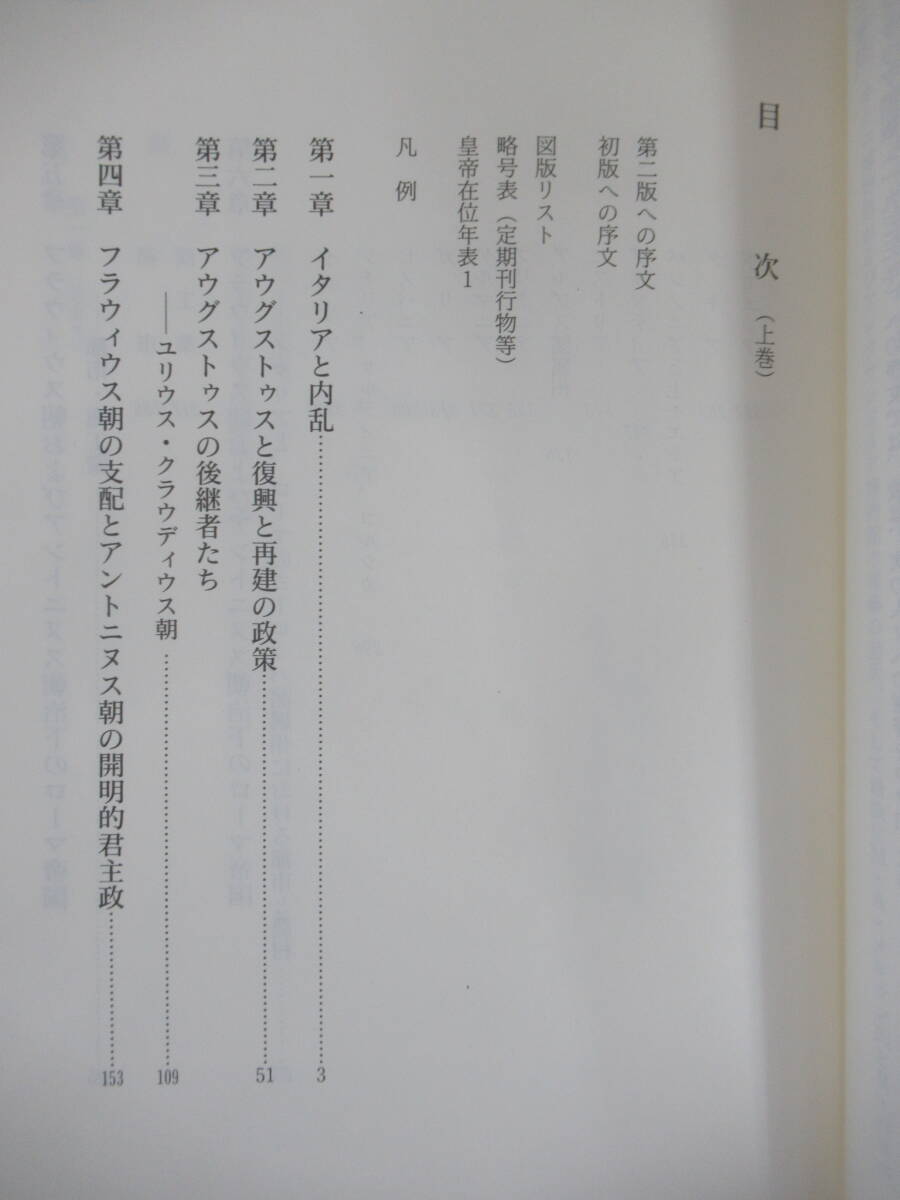 目次（上巻）
第二版への序文
初版への序文
図版リスト
略号表（定期刊行物等）
皇帝在位年表1
凡例
第一章　イタリアと内乱……3
第二章　アウグストゥスと復興と再建の政策……51
第三章　アウグストゥスの後継者たち
――ユリウス・クラウディウス朝……109
第四章　フラウィウス朝の支配とアントニヌス朝の開明的君主政……153